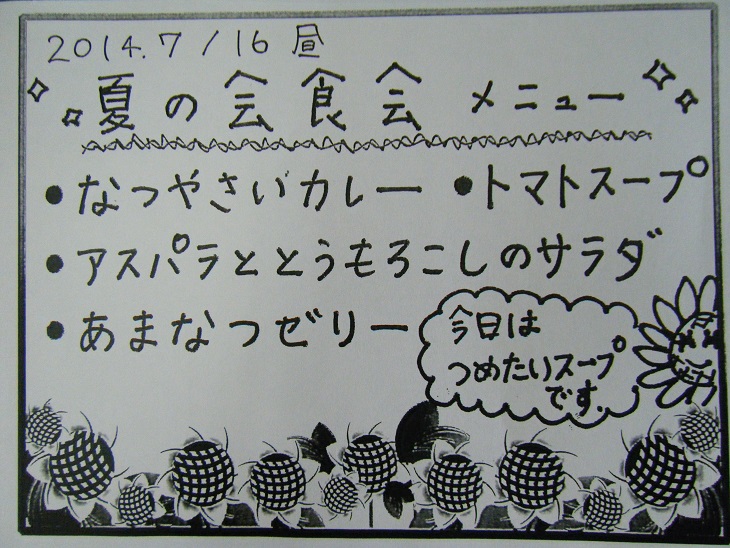 2014.7/16 昼
夏の会食会 メニュー
●なつやさいカレー ●トマトスープ
●アスパラととうもろこしのサラダ
●あまなつゼリー
今日は
つめたいスープ
です.